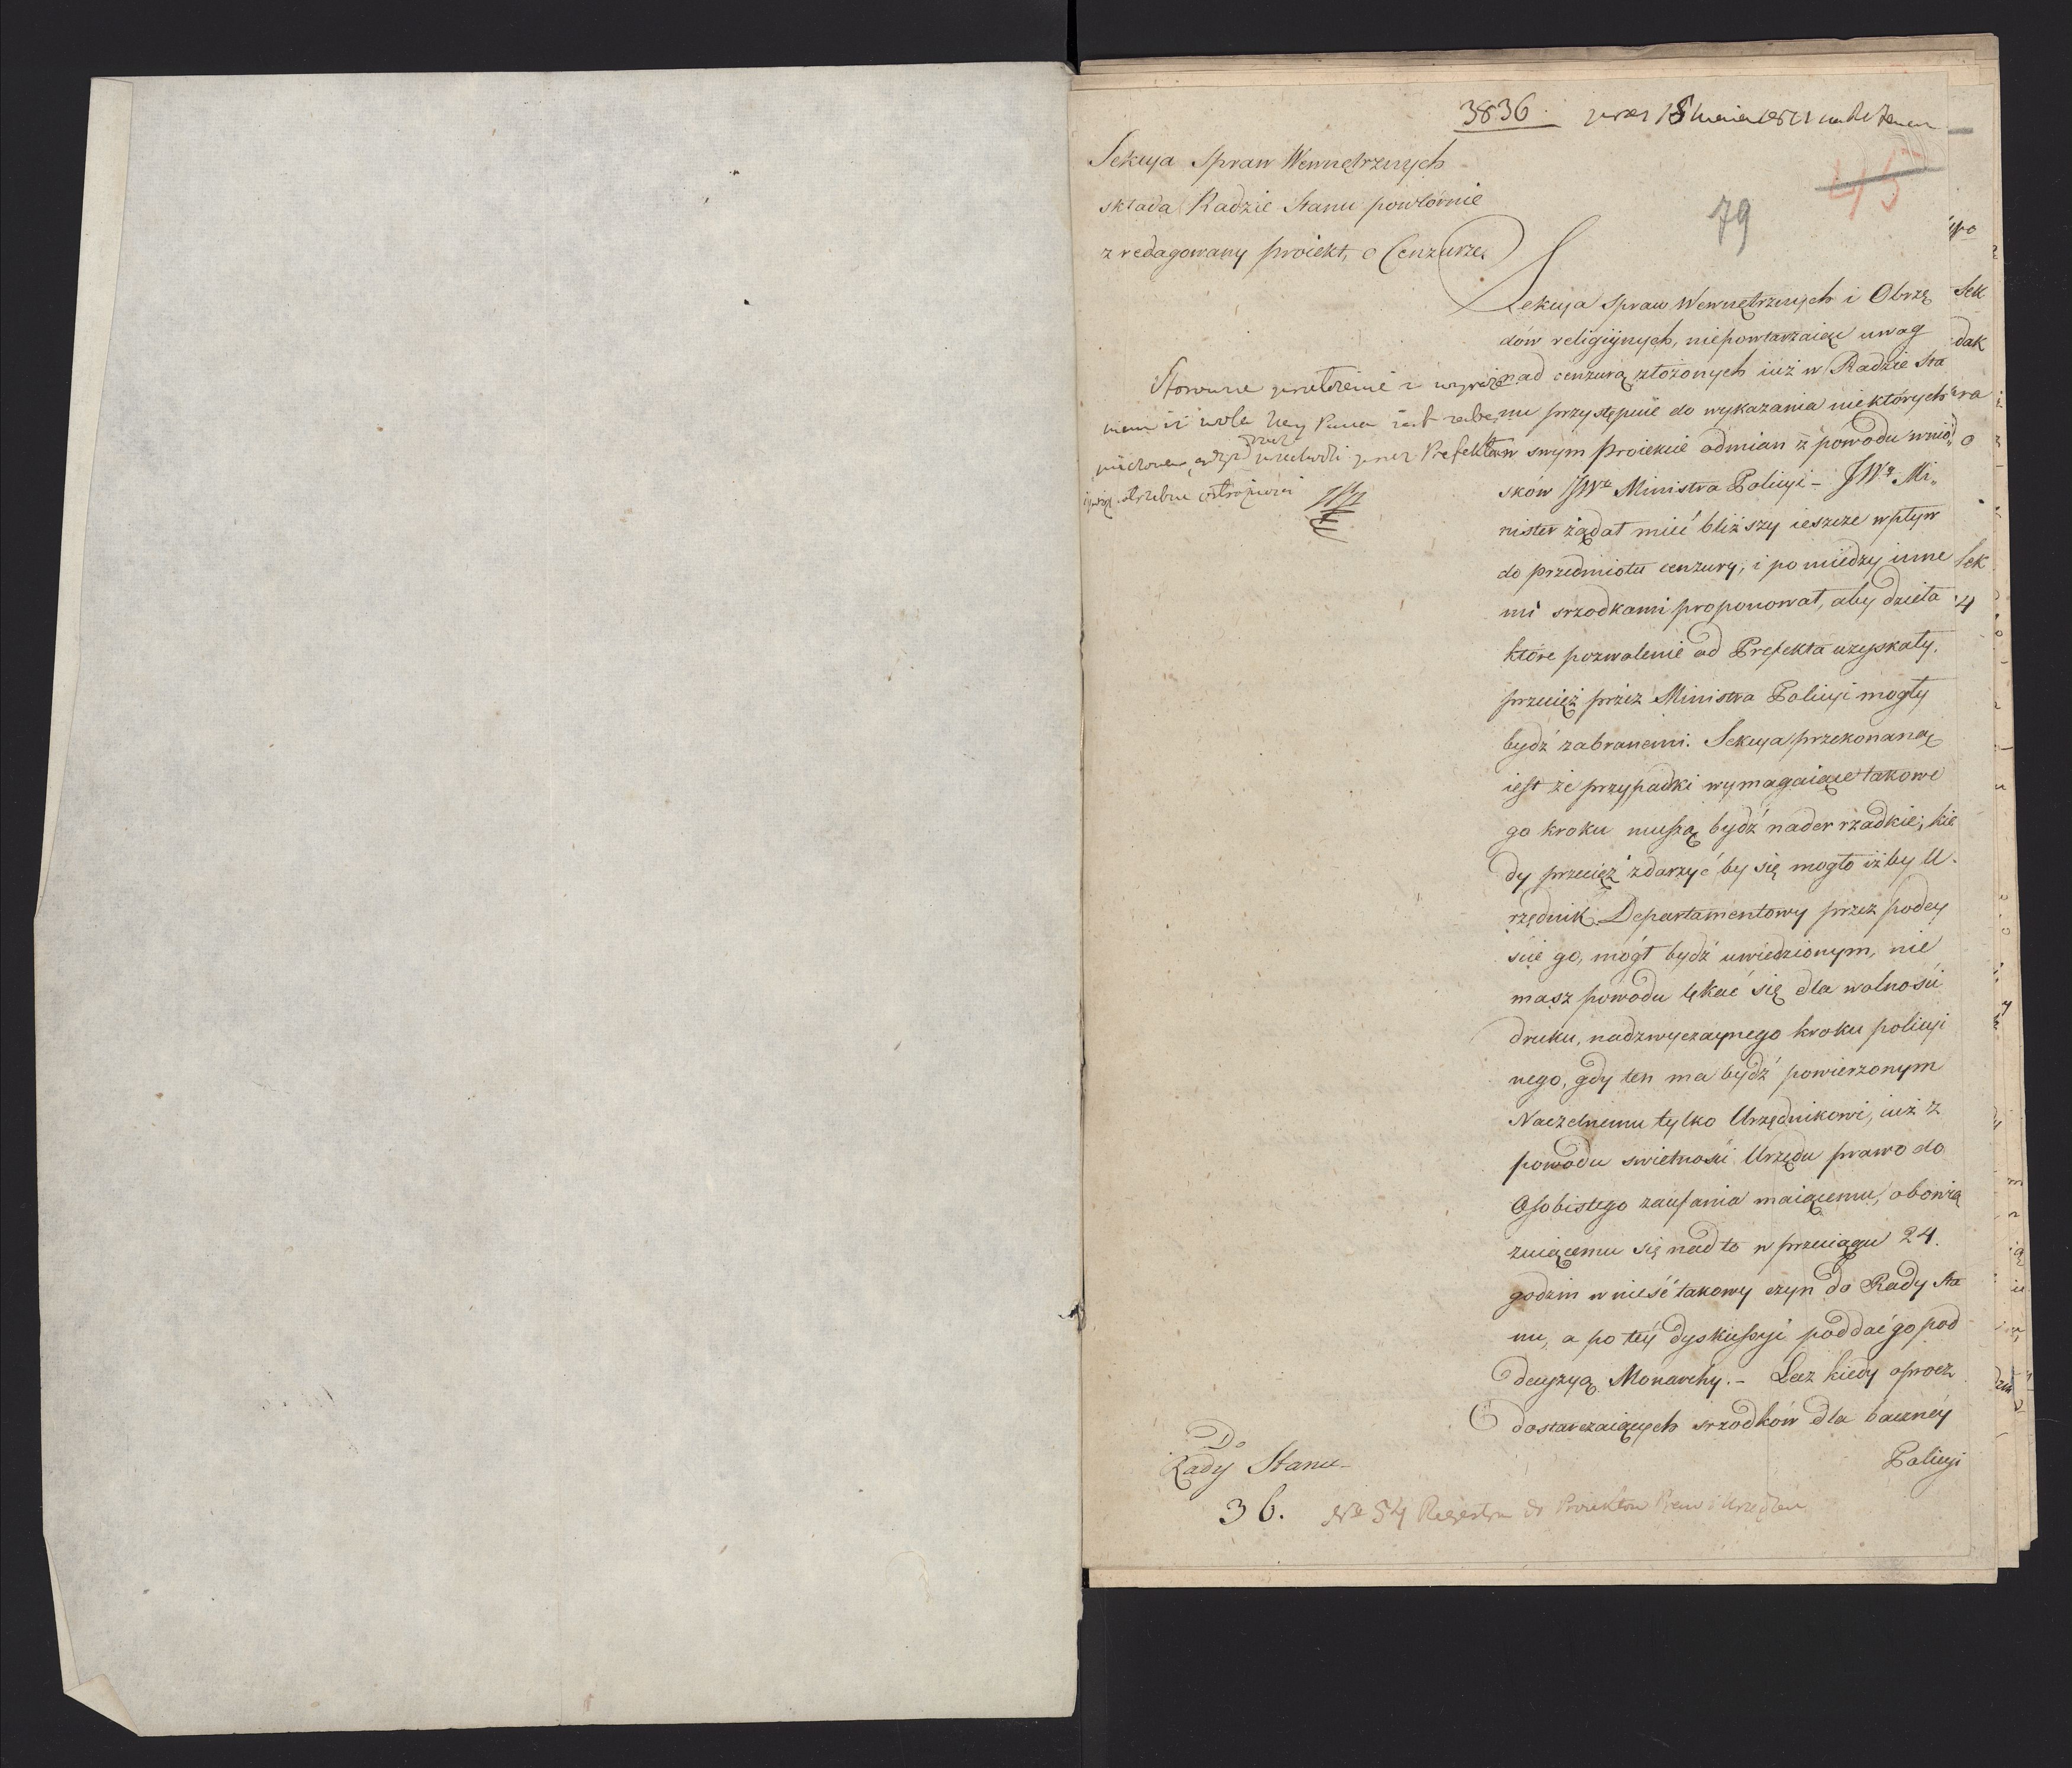 3836.
45
79
Sekcya Spraw Wewnętrznych
składa Radzie Stanu powtórnie
zredagowany proiekt, o Cenzurze.
Sekcya Spraw Wewnętrznych i Obrzę
dów religiynych, niepowtarzaiąc uwag
nad cenzurą złożonych iuż w Radzie Sta
nu przystępuie do wykazania niektórych
w swym Proiekcie odmian z powodu wnio„
sków JWo Ministra Policyi – JWy Mi„
nister żądał mieć bliższy ieszcze wpływ
do przedmiotu cenzury, i pomiędzy inne
mi srzodkami proponował, aby dzieła
które pozwolenie od Prefekta uzyskały,
przecięż przez Ministra Policyi mogły
bydź zabranemi. Sekcya przekonaną
iest że przypadki wymagaiące takowe
go kroku muszą bydź nader rzadkie; kie
dy przecięż zdarzyć by się mogło iżby U
rzędnik Departamentowy przez podey
ście go, mógł bydź uwiedzionym, nie
masz powodu lękać się dla wolności
druku, nadzwyczaynego kroku policyi
nego, gdy ten ma bydź powierzonym
Naczelnemu tylko Urzędnikowi, iuż z
powodu swietności Urzędu prawo do
Osobistego zaufania maiącemu, obowią
zuiącemu się nadto w przeciągu 24.
godzin wnieść takowy czyn do Rady Sta
nu, a po tey dyskussyi poddać go pod
decyzyą Monarchy. – Lecz kiedy oprocz
dostarczaiących srzodków dla baczney
Policyi
Stosowne
iż wola Pana iest
przez Prefektów
Do
Rady Stanu
36.
No 54